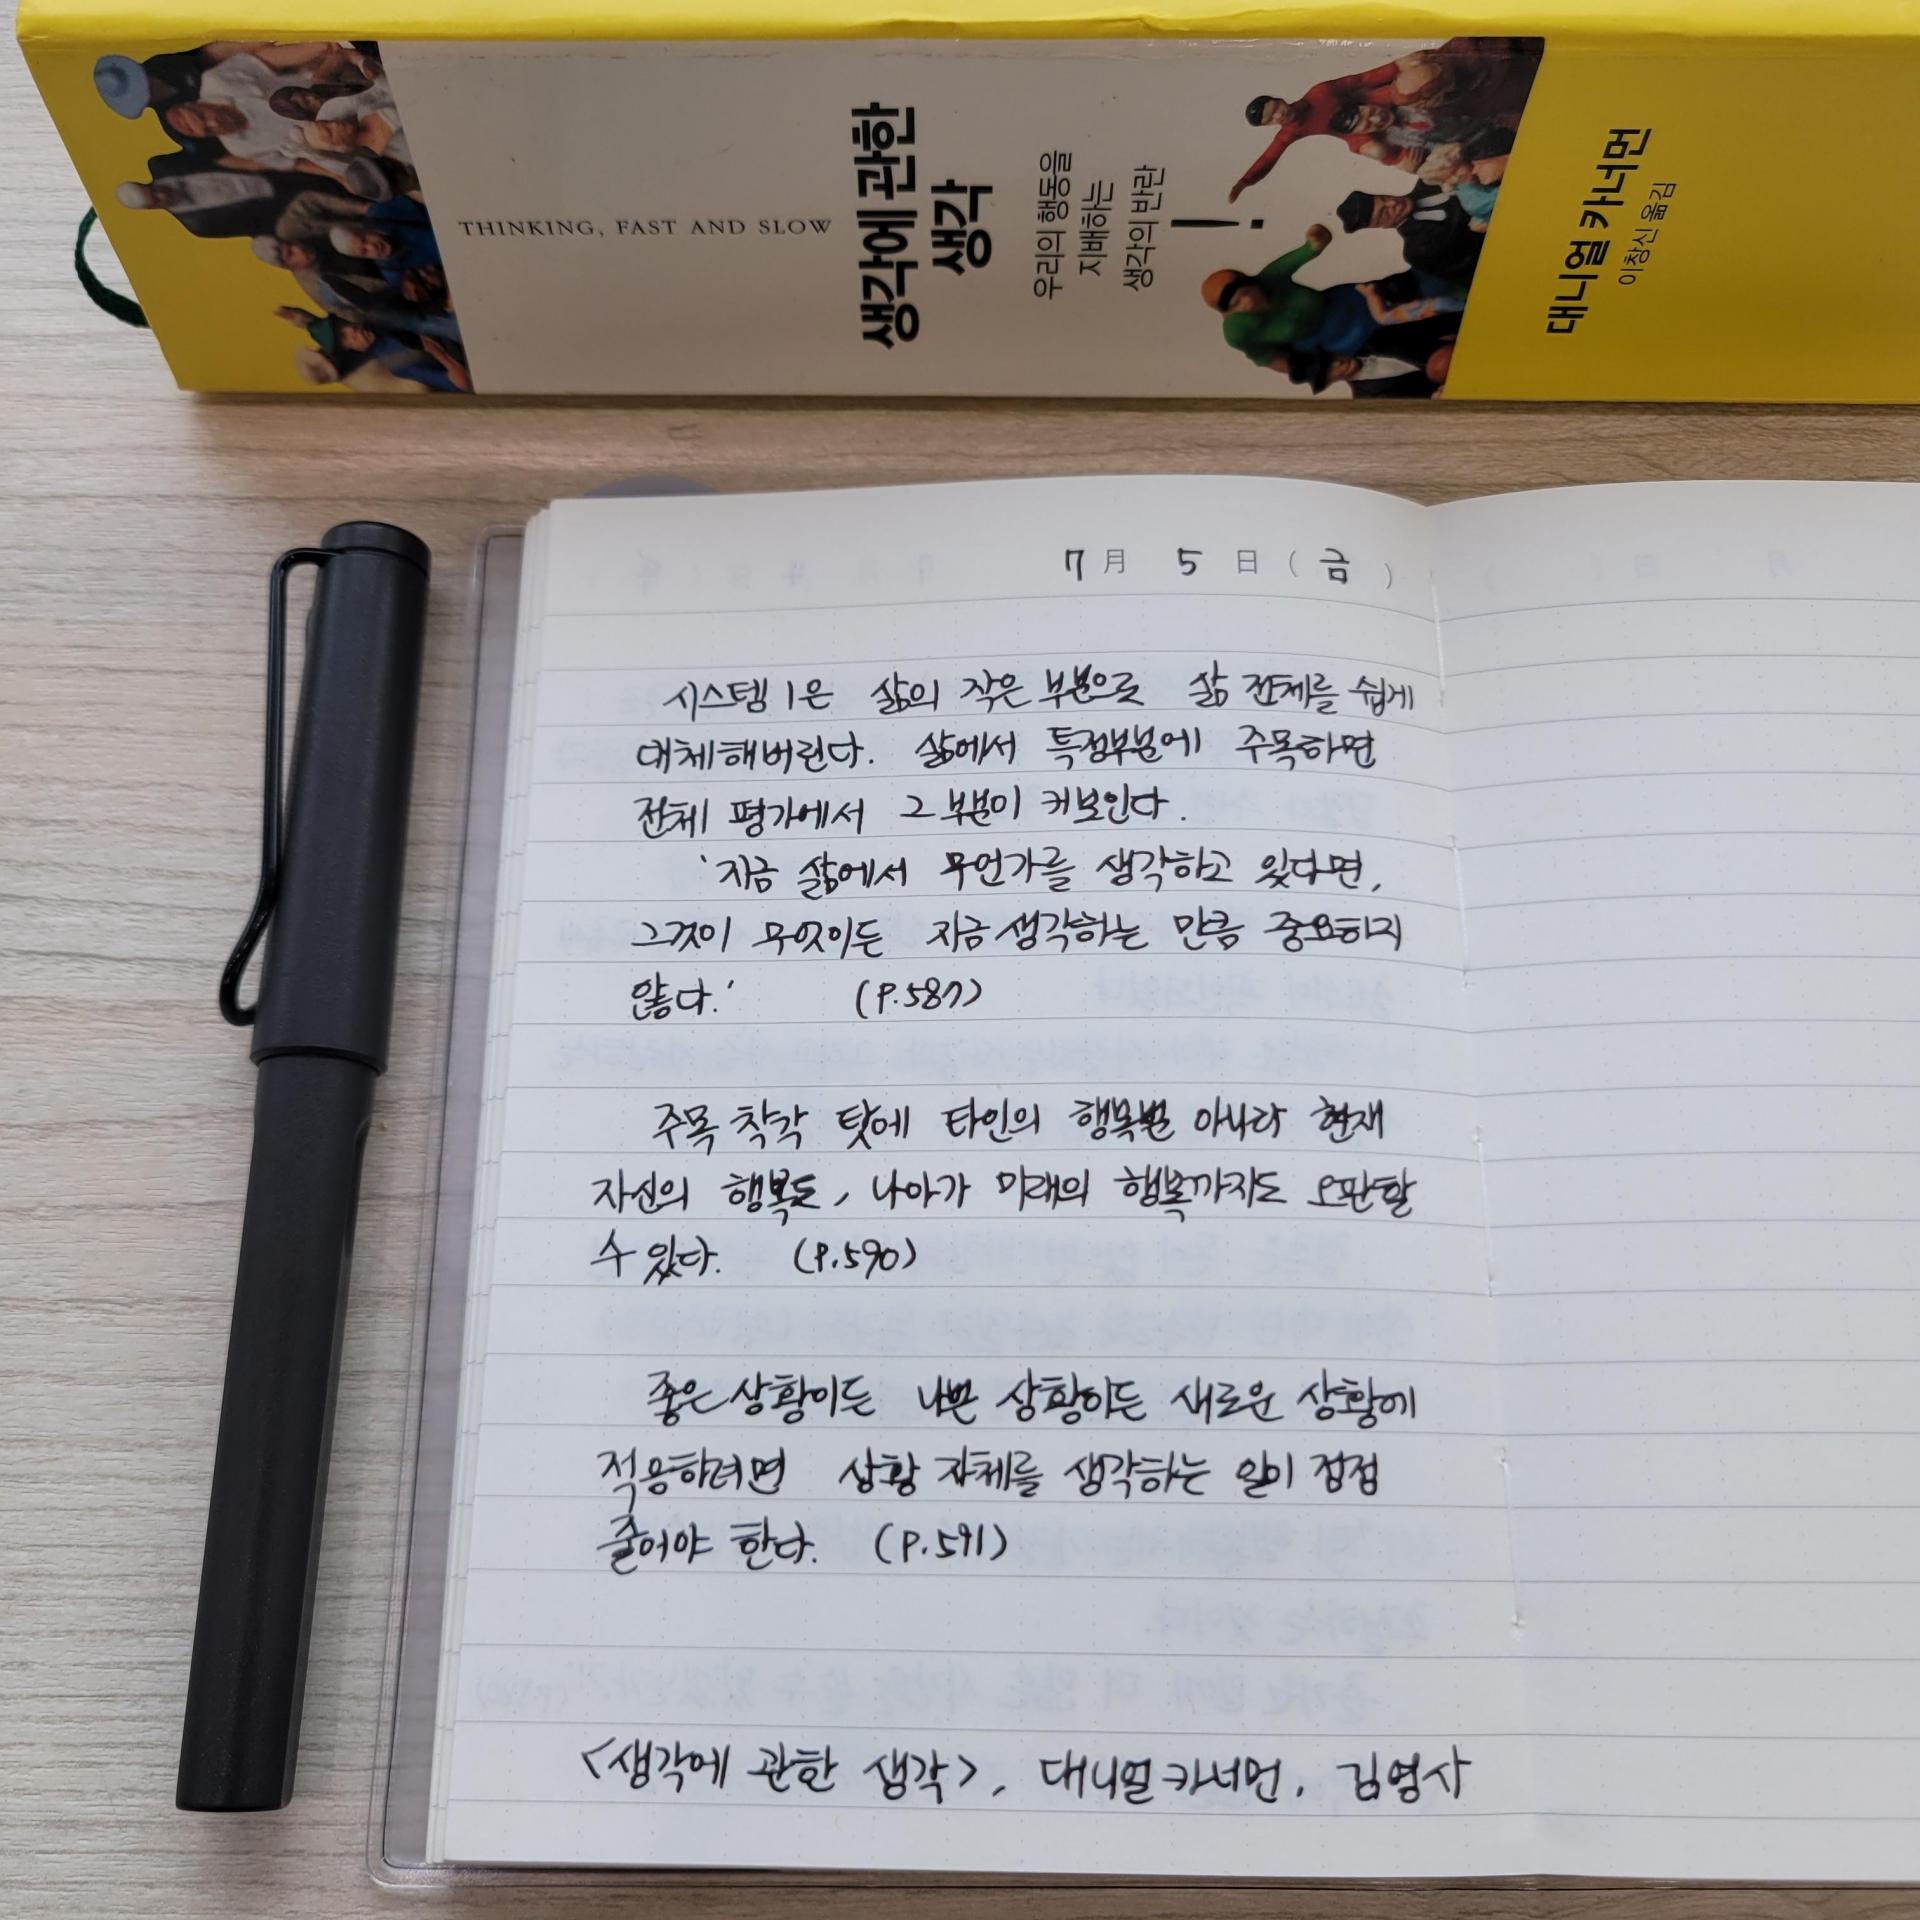 THINKING, FAST AND SLOW
생각에 관한
생각
우리의 행동을
지배하는
생각의 반란
!
대니얼 카너먼
이창신 옮김
7月 5日(금)
시스템 1은 삶의 작은 부분으로 삶 전체를 쉽게
대체해버린다. 삶에서 특정부분에 주목하면
전체 평가에서 그 부분이 커보인다.
'지금 삶에서 무언가를 생각하고 있다면,
그것이 무엇이든 지금 생각하는 만큼 중요하지
않다.' (P.587)
주목 착각 탓에 타인의 행복뿐 아니라 현재
자신의 행복도, 나아가 미래의 행복까지도 오판할
수 있다. (P.590)
좋은 상황이든 나쁜 상황이든 새로운 상황에
적응하려면 상황 자체를 생각하는 일이 점점
줄어야 한다. (P.591)
<생각에 관한 생각>, 대니얼카너먼, 김영사